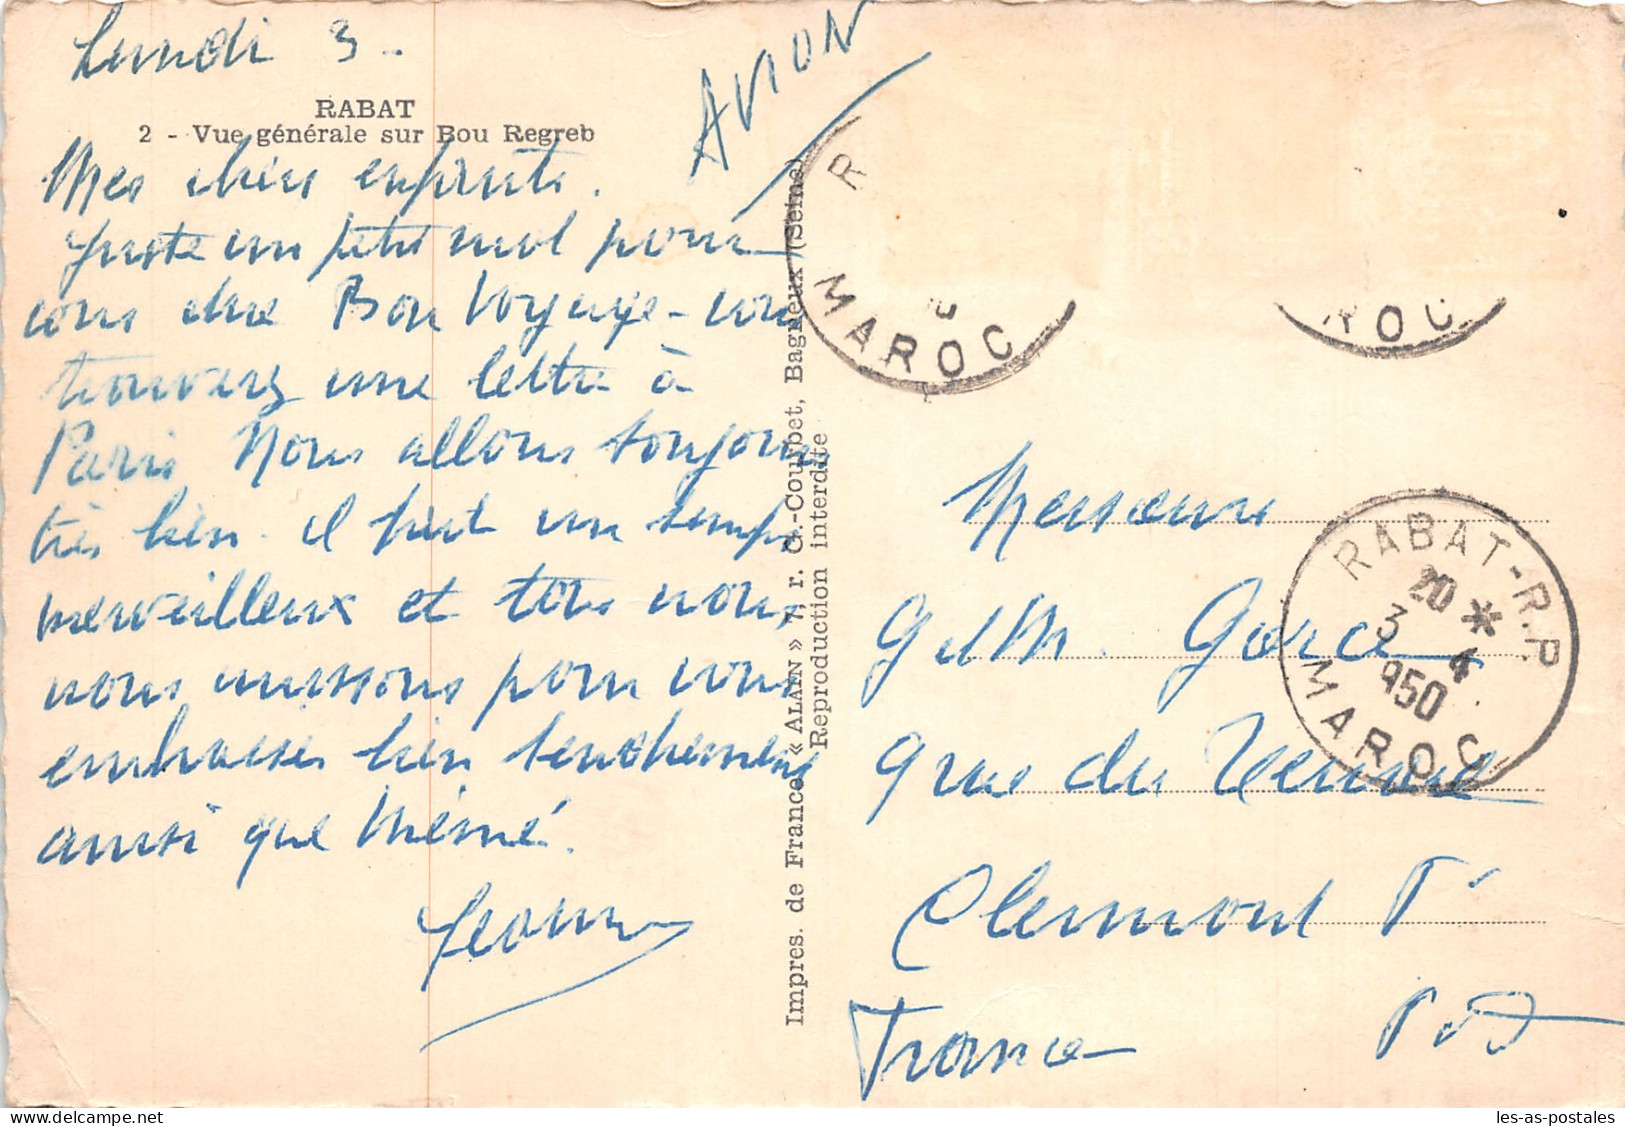 Lundi 3 -
AVION
RABAT
2 - Vue générale sur Bou Regreb
Mes chers enfants.
Juste un petit mot pour
vous dire Bon Voyage - vous
trouverez une lettre à
Paris Nous allons toujours
très bien. il fait un temps
merveilleux et tous nous
nous unissons pour vous
embrasser bien tendrement
ainsi que Mémé.
Impres. de France « ALAIN » 7, r. G.-Courbet, Bagneux (Seine)
Reproduction interdite
R
MAROC
ROC
RABAT-R.P.
20 *
3 4
950
MAROC
Messieurs
G et M. Gorce
9 rue du
Clermont Fd
France P d D
les-as-postales